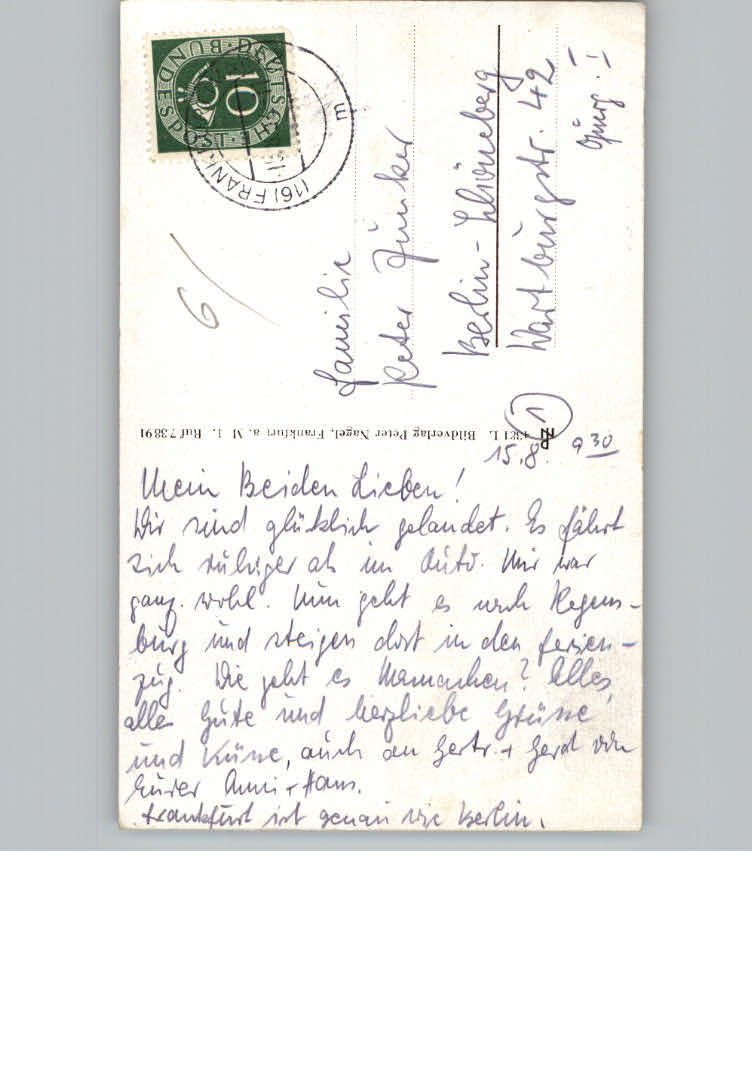 DEUTSCHE BUNDESPOST
10
(16) FRANKFURT
m
6
Familie
Peter Junker
Berlin-Schöneberg
Wartburgstr. 42
4381 L Bildverlag Peter Nagel, Frankfurt a. M 1. Ruf 73891
1
15.8. 9 30
Mein Beiden Lieben!
Wir sind glücklich gelandet. Es fährt
sich ruhiger als im Auto. Mir war
ganz wohl. Nun geht es nach Regens-
burg und steigen dort in den Ferien-
zug. Wie geht es Mamachen? Alles,
alles Gute und herzliebe Grüsse
und Küsse, auch an Gertr. + Gerd von
Eurer Anni + Hans.
Frankfurt ist genau wie Berlin.